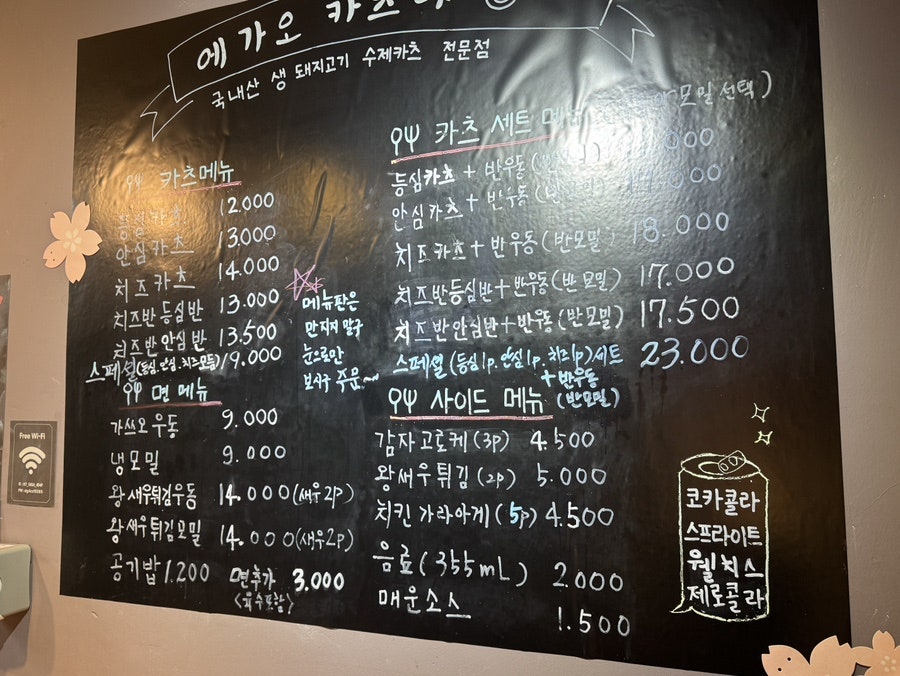 에가오 카츠
국내산 생 돼지고기 수제카츠 전문점
카츠메뉴
등심카츠 12.000
안심카츠 13.000
치즈카츠 14.000
치즈반등심반 13.000
치즈반안심반 13.500
스페셜(등심,안심,치즈모듬) 19.000
메뉴판은
만지지 말구
눈으로만
보시구 주문~
면 메뉴
가쓰오우동 9.000
냉모밀 9.000
왕새우튀김우동 14.000(새우2P)
왕새우튀김모밀 14.000(새우2P)
공기밥 1.200 면추가 3.000
<육수포함>
카츠 세트 메뉴 모밀 선택)
등심카츠 + 반우동
안심카츠 + 반우동
치즈카츠 + 반우동(반모밀) 18.000
치즈반등심반+반우동(반모밀) 17.000
치즈반안심반+반우동(반모밀) 17.500
스페셜(등심1p.안심1p.치즈1p)세트 23.000
+반우동
(반모밀)
사이드 메뉴
감자고로케(3p) 4.500
왕새우튀김(2p) 5.000
치킨가라아게(5p) 4.500
음료(355mL) 2.000
매운소스 1.500
코카콜라
스프라이트
웰치스
제로콜라
Free Wi-Fi